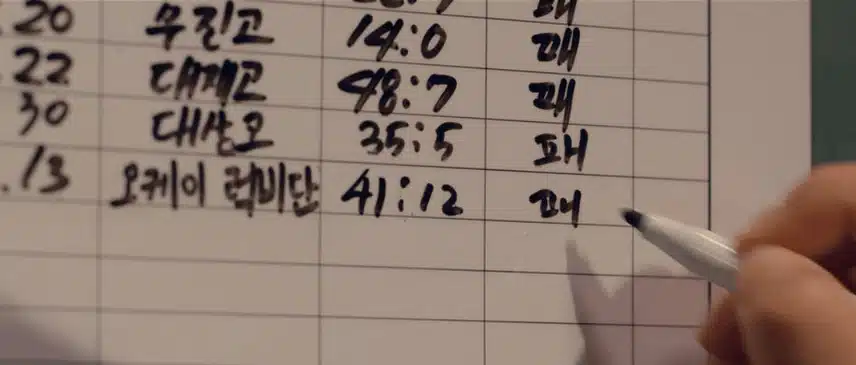 .20 무진고 14:0 패
.22 대제고 48:7 패
30 대상고 35:5 패
.13 오케이 럭비단 41:12 패